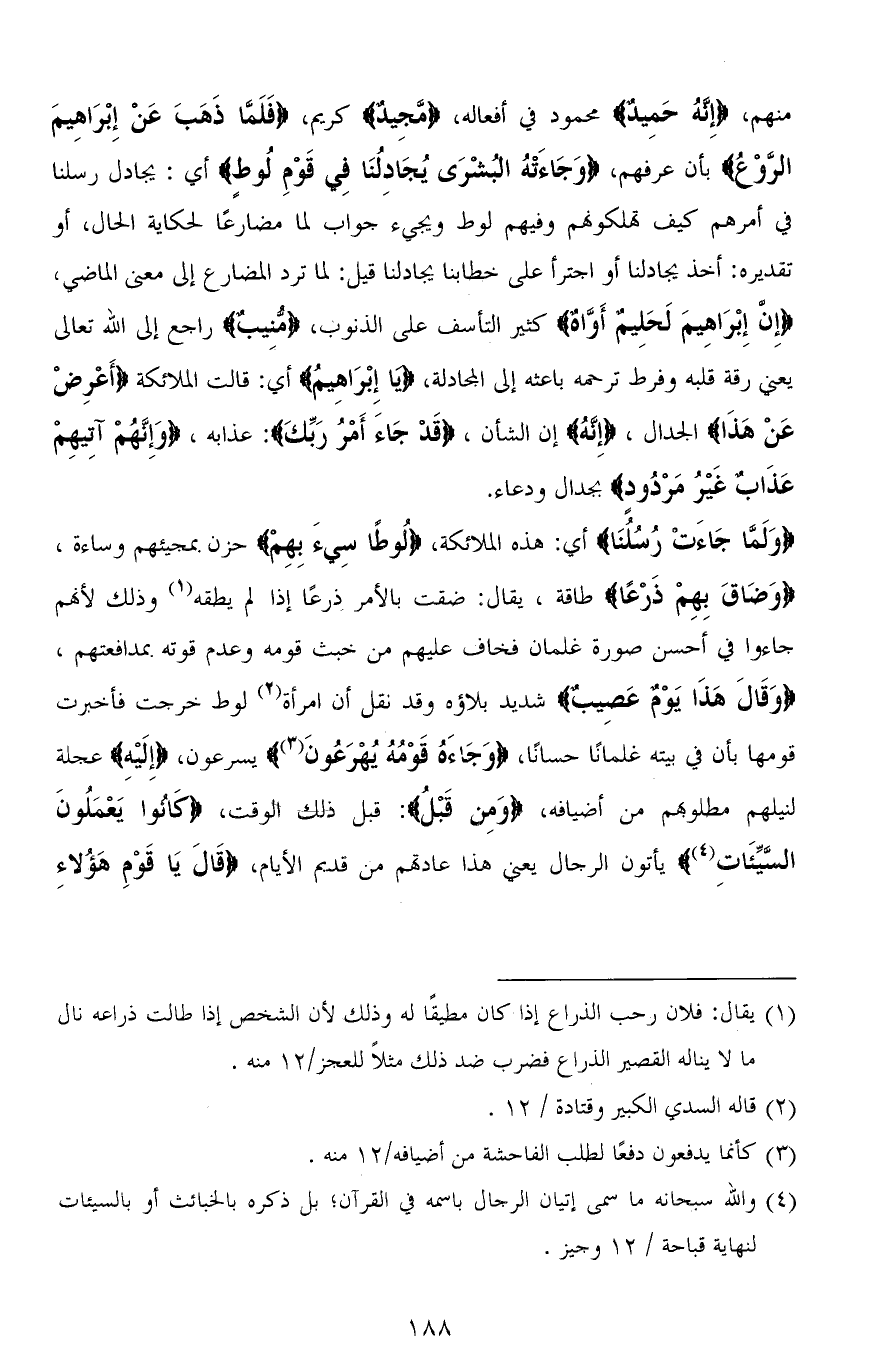 منهم، ﴿إِنَّهُ حَمِيدٌ﴾ محمود في أفعاله، ﴿مَّجِيدٌ﴾ كريم، ﴿فَلَمَّا ذَهَبَ عَنْ إِبْرَاهِيمَ
الرَّوْعُ﴾ بأن عرفهم، ﴿وَجَاءَتْهُ البُشْرَى يُجَادِلُنَا فِي قَوْمِ لُوطٍ﴾ أي : يجادل رسلنا
في أمرهم كيف تهلكونهم وفيهم لوط ويجيء جواب لما مضارعًا لحكاية الحال، أو
تقديره: أخذ يجادلنا أو اجترأ على خطابنا يجادلنا قيل: لما ترد المضارع إلى معنى الماضي،
﴿إِنَّ إِبْرَاهِيمَ لَحَلِيمٌ أَوَّاهٌ﴾ كثير التأسف على الذنوب، ﴿مُّنِيبٌ﴾ راجع إلى الله تعالى
يعني رقة قلبه وفرط ترحمه باعثه إلى المجادلة، ﴿يَا إِبْرَاهِيمُ﴾ أي: قالت الملائكة ﴿أَعْرِضْ
عَنْ هَذَا﴾ الجدال ، ﴿إِنَّهُ﴾ إن الشأن ، ﴿قَدْ جَاءَ أَمْرُ رَبِّكَ﴾: عذابه ، ﴿وَإِنَّهُمْ آتِيهِمْ
عَذَابٌ غَيْرُ مَرْدُودٍ﴾ بجدال ودعاء.
﴿وَلَمَّا جَاءَتْ رُسُلُنَا﴾ أي: هذه الملائكة، ﴿لُوطًا سِيءَ بِهِمْ﴾ حزن بمجيئهم وساءة ،
﴿وَضَاقَ بِهِمْ ذَرْعًا﴾ طاقة ، يقال: ضقت بالأمر ذرعًا إذا لم يطقه(١) وذلك لأنهم
جاءوا في أحسن صورة غلمان فخاف عليهم من خبث قومه وعدم قوته بمدافعتهم ،
﴿وَقَالَ هَذَا يَوْمٌ عَصِيبٌ﴾ شديد بلاؤه وقد نقل أن امرأة(٢) لوط خرجت فأخبرت
قومها بأن في بيته غلمانًا حسانًا، ﴿وَجَاءَهُ قَوْمُهُ يُهْرَعُونَ(٣)﴾ يسرعون، ﴿إِلَيْهِ﴾ عجلة
لنيلهم مطلوبهم من أضيافه، ﴿وَمِن قَبْلُ﴾: قبل ذلك الوقت، ﴿كَانُوا يَعْمَلُونَ
السَّيِّئَاتِ(٤)﴾ يأتون الرجال يعني هذا عادتهم من قديم الأيام، ﴿قَالَ يَا قَوْمِ هَؤُلاءِ
(١) يقال: فلان رحب الذراع إذا كان مطيقًا له وذلك لأن الشخص إذا طالت ذراعه نال
ما لا يناله القصير الذراع فضرب ضد ذلك مثلاً للعجز/١٢ منه .
(٢) قاله السدي الكبير وقتادة / ١٢ .
(٣) كأنما يدفعون دفعًا لطلب الفاحشة من أضيافه/١٢ منه .
(٤) والله سبحانه ما سمى إتيان الرجال باسمه في القرآن؛ بل ذكره بالخبائث أو بالسيئات
لنهاية قباحة / ١٢ وجيز .
١٨٨